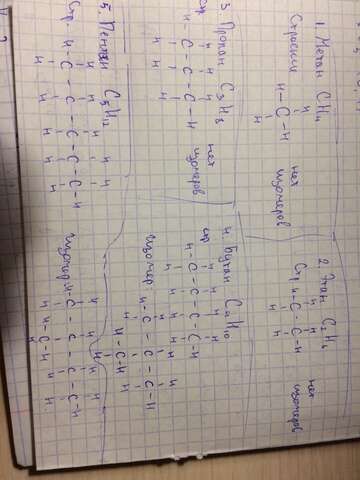 1. Метан CH4
Строение
H
H - C - H
H
нет
изомеров
2. Этан C2H4
Стр.
H H
H - C - C - H
H H
нет
изомеров
3. Пропан C3H8
Стр
H H H
H - C - C - C - H
H H H
нет
изомеров
4. Бутан C4H10
стр
H H H H
H - C - C - C - C - H
H H H H
изомер:
H H H
H - C - C - C - H
H H
H - C - H
H
5. Пентан C5H12
Стр.
H H H H H
H - C - C - C - C - C - H
H H H H H
изомер:
H H H H
H - C - C - C - C - H
H H H
H - C - H
H